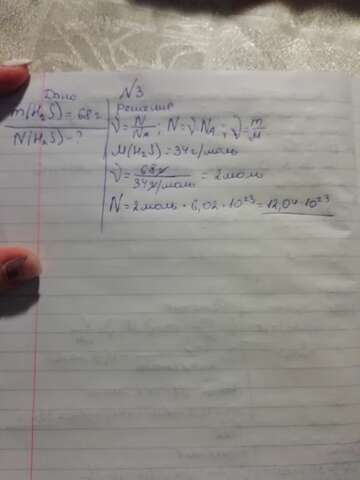 №3
Дано
m(H₂S) = 68г
N(H₂S) - ?
Решение
ν = N/Nₐ ; N = νNₐ ; ν = m/M
M(H₂S) = 34г/моль
ν = 68г/34г/моль = 2моль
N = 2моль · 6,02 · 10²³ = 12,04 · 10²³